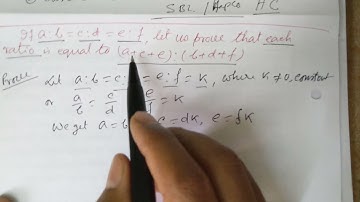 SBL / Hepro HC
If a:b = c:d = e:f, let us prove that each
ratio is equal to (a+c+e):(b+d+f)
Prove Let a:b = c: = e:f = K, where K≠0, constant
or a/b = c/d e/f = K
We get a = b = dK, e = fK